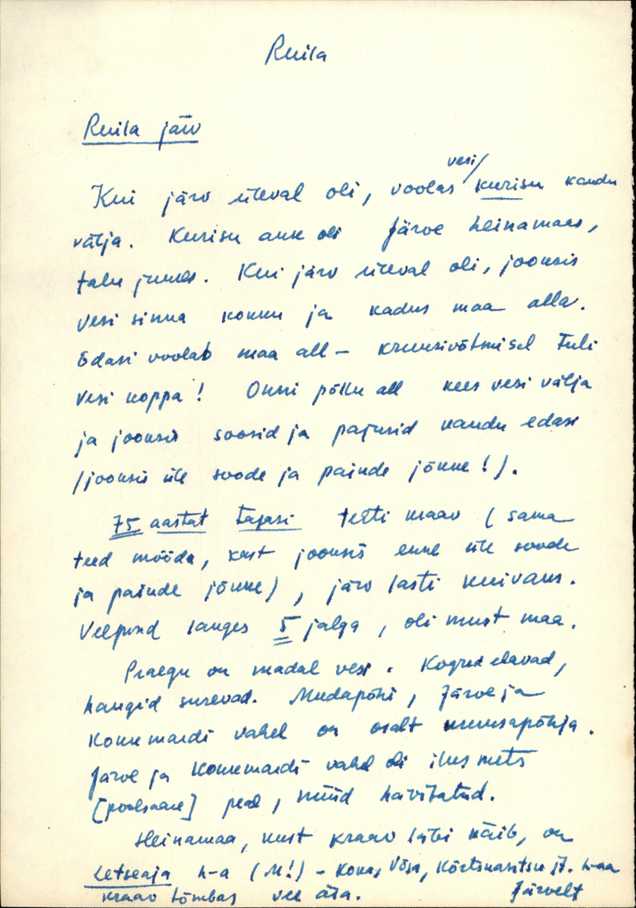 Ruila
Ruila järv
Kui järv üleval oli, voolas vesi/ kurisu kaudu
välja. Kurisu auk oli Järve heinamaas,
talu juures. Kui järv üleval oli, jooksis
vesi sinna kokku ja kadus maa alla.
Edasi voolab maa all – kruusivõtmisel tuli
vesi koppa! Onni põllu all kees vesi välja
ja jooksis soosid ja pajusid kaudu edasi
(jooksis üle soode ja painde jõkke!).
75 aastat tagasi tehti kraav (sama
teed mööda, kust jooksis enne üle soode
ja painde jõkke), järv lasti kuivaks.
Veepind langes 5 jalga, oli must maa.
Praegu on madal vesi. Kogred elavad,
haugid surevad. Mudapõhi, Järve ja
Konemardi vahel on osalt kruusapõhja.
Järve ja Konemardi vahel oli ilus mets
[poolsaare] peal, nüüd hävitatud.
Heinamaa, kust kraav läbi käib, on
Letseaja h-a (M!) – Kona, Võsa, jt. h-aa
kraav tõmbas vee ära. Järvelt